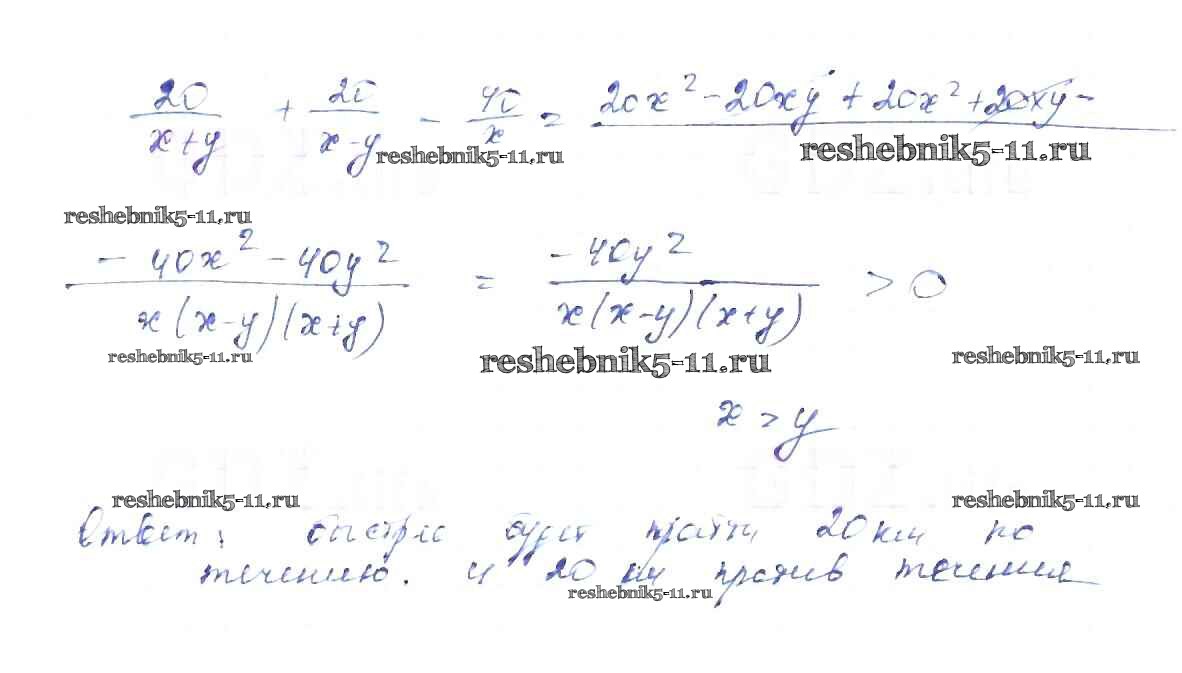 20/(x+y) + 20/(x-y) - 40/x = 20x² - 20xy + 20x² + 20xy -
reshebnik5-11.ru reshebnik5-11.ru
reshebnik5-11.ru
(- 40x² - 40y²)/(x(x-y)(x+y)) = (-40y²)/(x(x-y)(x+y)) > 0
reshebnik5-11.ru reshebnik5-11.ru reshebnik5-11.ru
x > y
reshebnik5-11.ru reshebnik5-11.ru
Ответ: быстрее будет пройти 20 км по
течению. и 20 км против течения
reshebnik5-11.ru